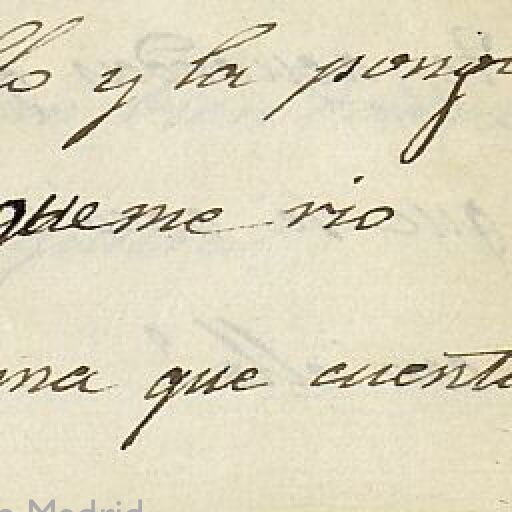 llo y la ponga
que me rio
ma que cuenta
Madrid